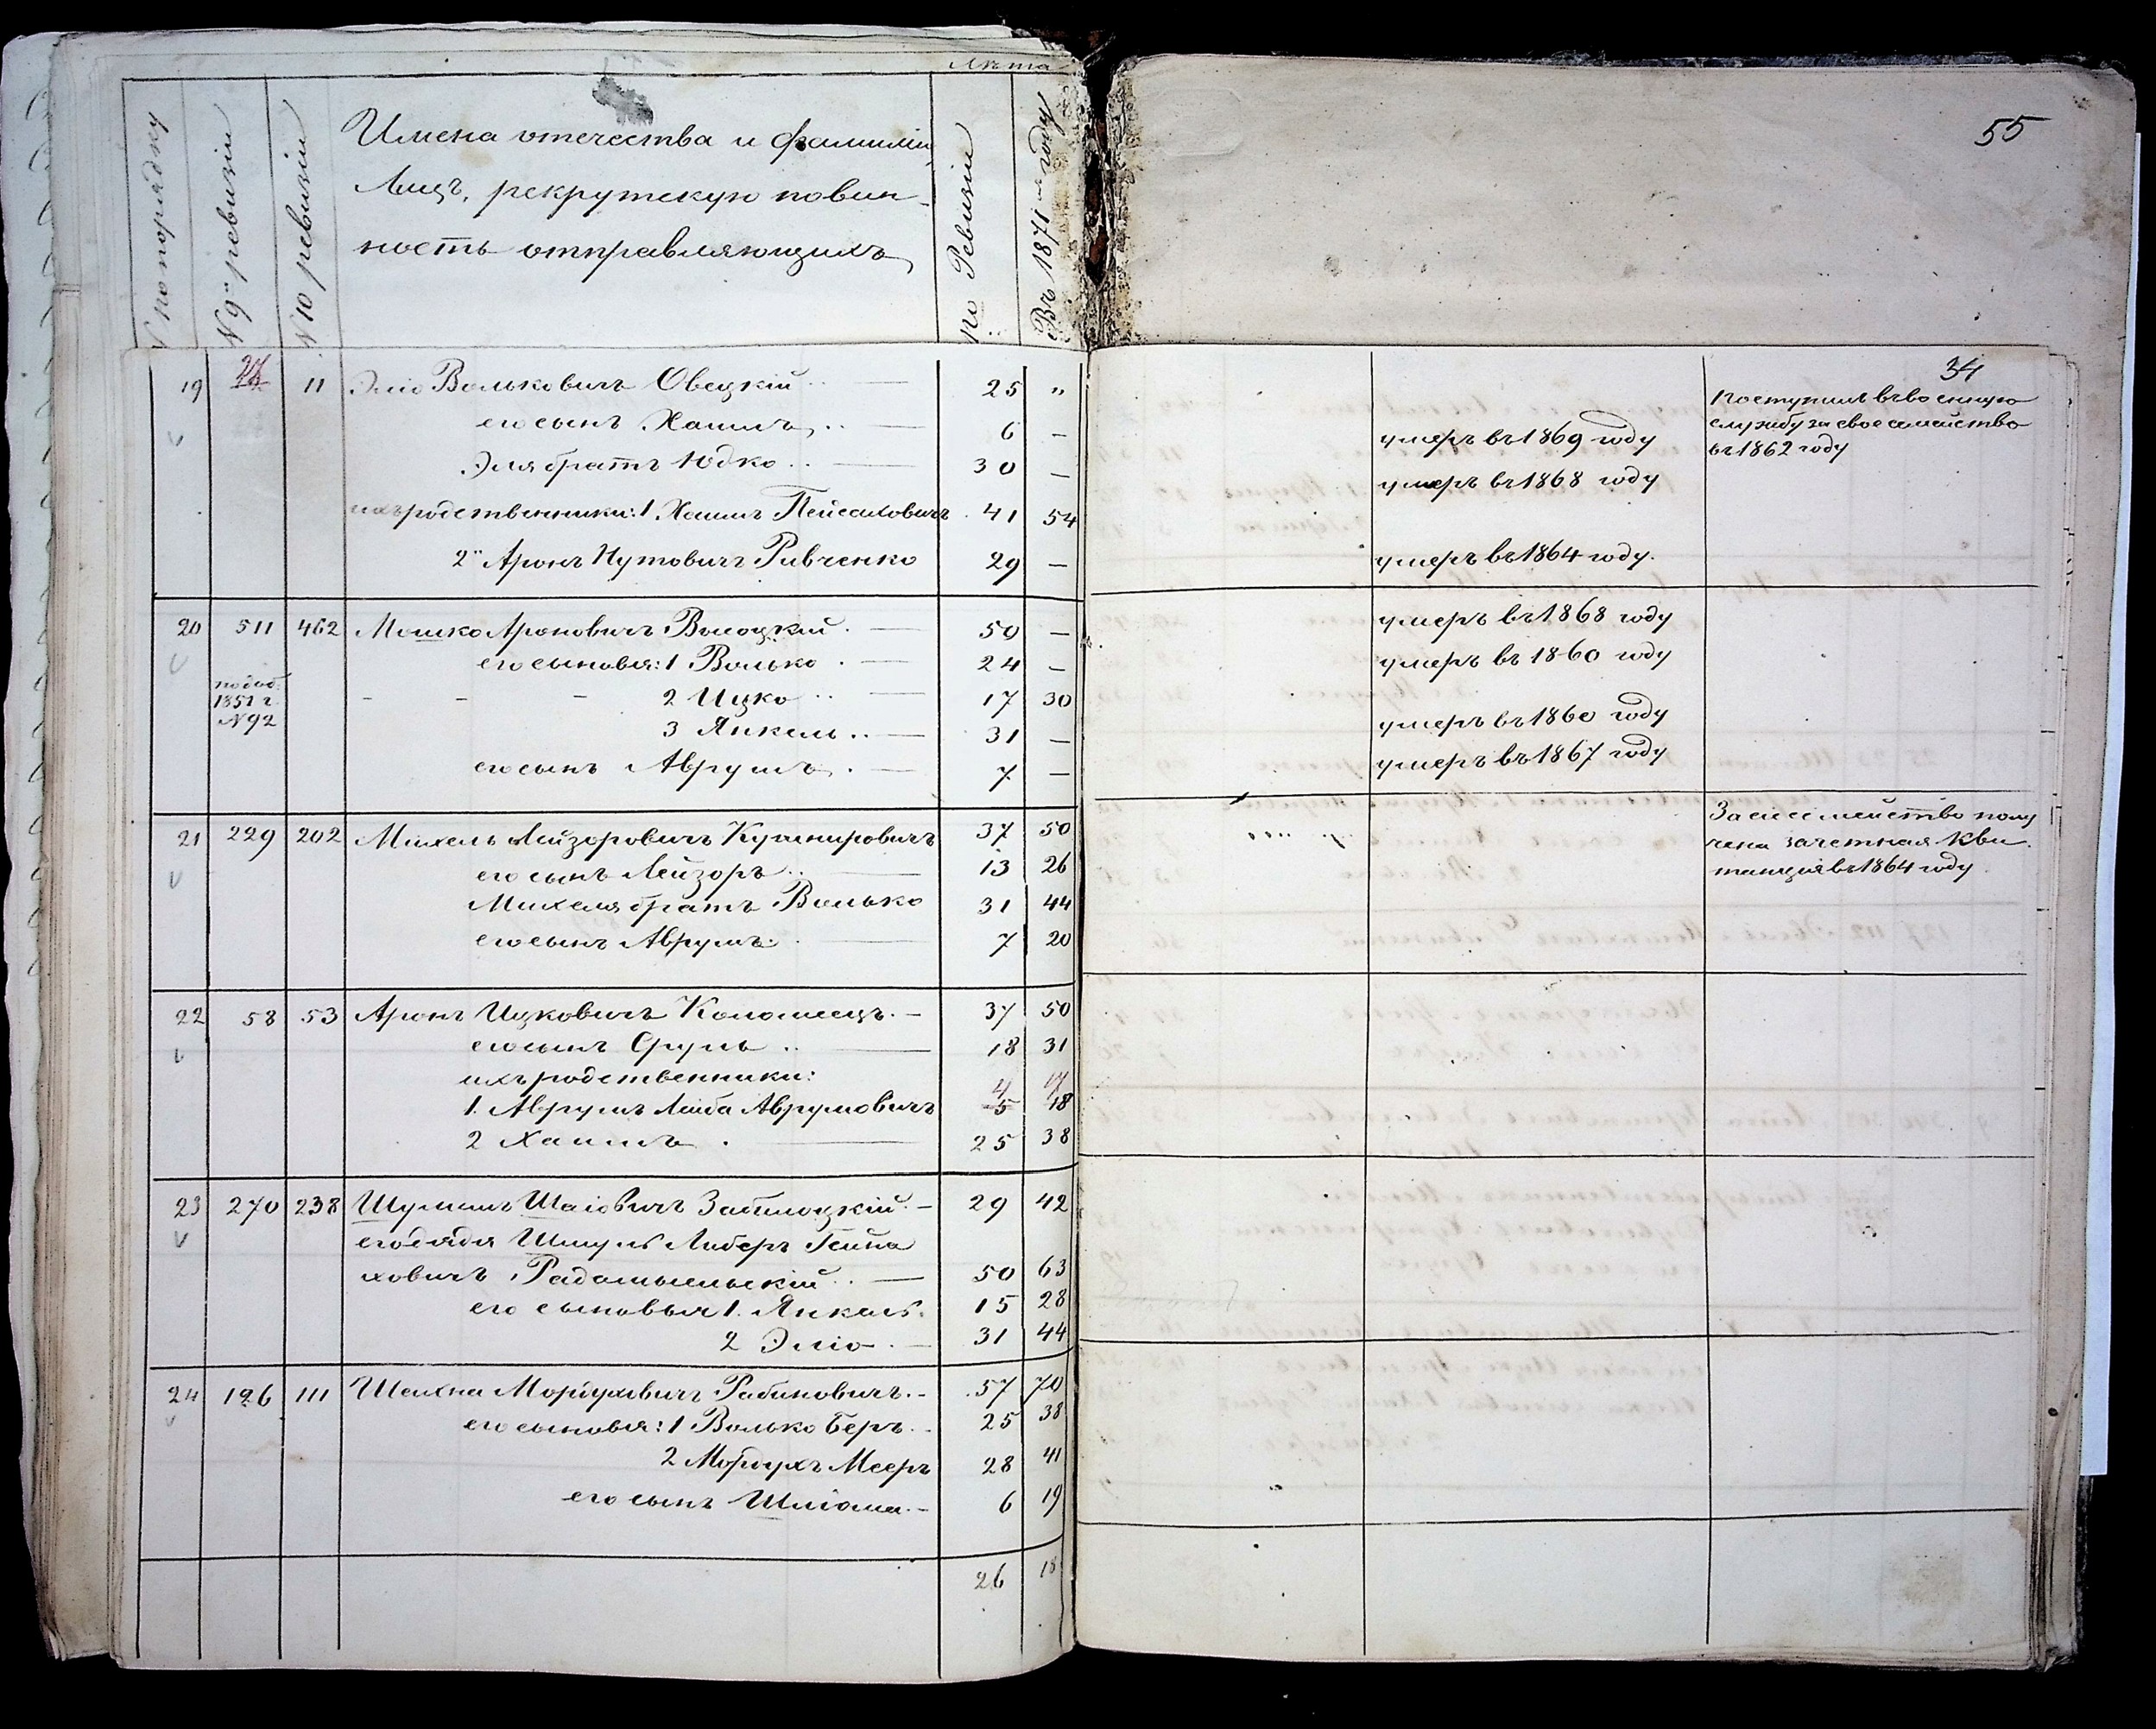 Лѣта
№ по порядку
№ 9й ревизіи
№ 10 ревизіи
Имена отечества и фамиліи
Лицъ, рекрутскую повин-
ность отправляющихъ
по Ревизіи
Въ 1871 году
55
34
19 11 Эліо Вольковичъ Овецкій 25 "
его сынъ Хаимъ 6 — умеръ въ 1869 году
Эля братъ Юдко 30 — умеръ въ 1868 году
Поступилъ въ военную
службу за свое семейство
въ 1862 году
ихъ родственники: 1. Хаимъ Пейсаховичъ 41 54
2й Аронъ Нутовичъ Ривченко 29 — умеръ въ 1864 году.
20 511 462 Мошко Ароновичъ Волоцкій 50 — умеръ въ 1868 году
его сыновья: 1 Волько 24 — умеръ въ 1860 году
1851 г.
№ 92
2 Ицко 17 30
3 Янкель 31 — умеръ въ 1860 году
его сынъ Аврумъ 7 — умеръ въ 1867 году
21 229 202 Михель Лейзоровичъ Кушнировичъ 37 50
его сынъ Лейзоръ 13 26
Михеля братъ Волько 31 44
его сынъ Аврумъ 7 20
За сіе семейство полу
чена зачетная Кви
танція въ 1864 году
22 58 53 Аронъ Ицковичъ Коломеецъ 37 50
его сынъ Сруль 18 31
ихъ родственники: 4 17
1. Аврумъ Лейба Аврумовичъ 5 18
2 Хаимъ 25 38
23 270 238 Шулимъ Шаіовичъ Заблоцкій 29 42
его дядя Шмуль Либеръ Гейна
ховичъ Радомысльскій 50 63
его сыновья 1. Янкель 15 28
2 Эліо 31 44
24 126 111 Шахна Мордуховичъ Рабиновичъ 57 70
его сыновья: 1 Волько Беръ 25 38
2 Мордухъ Мееръ 28 41
его сынъ Шліома 6 19
26 18